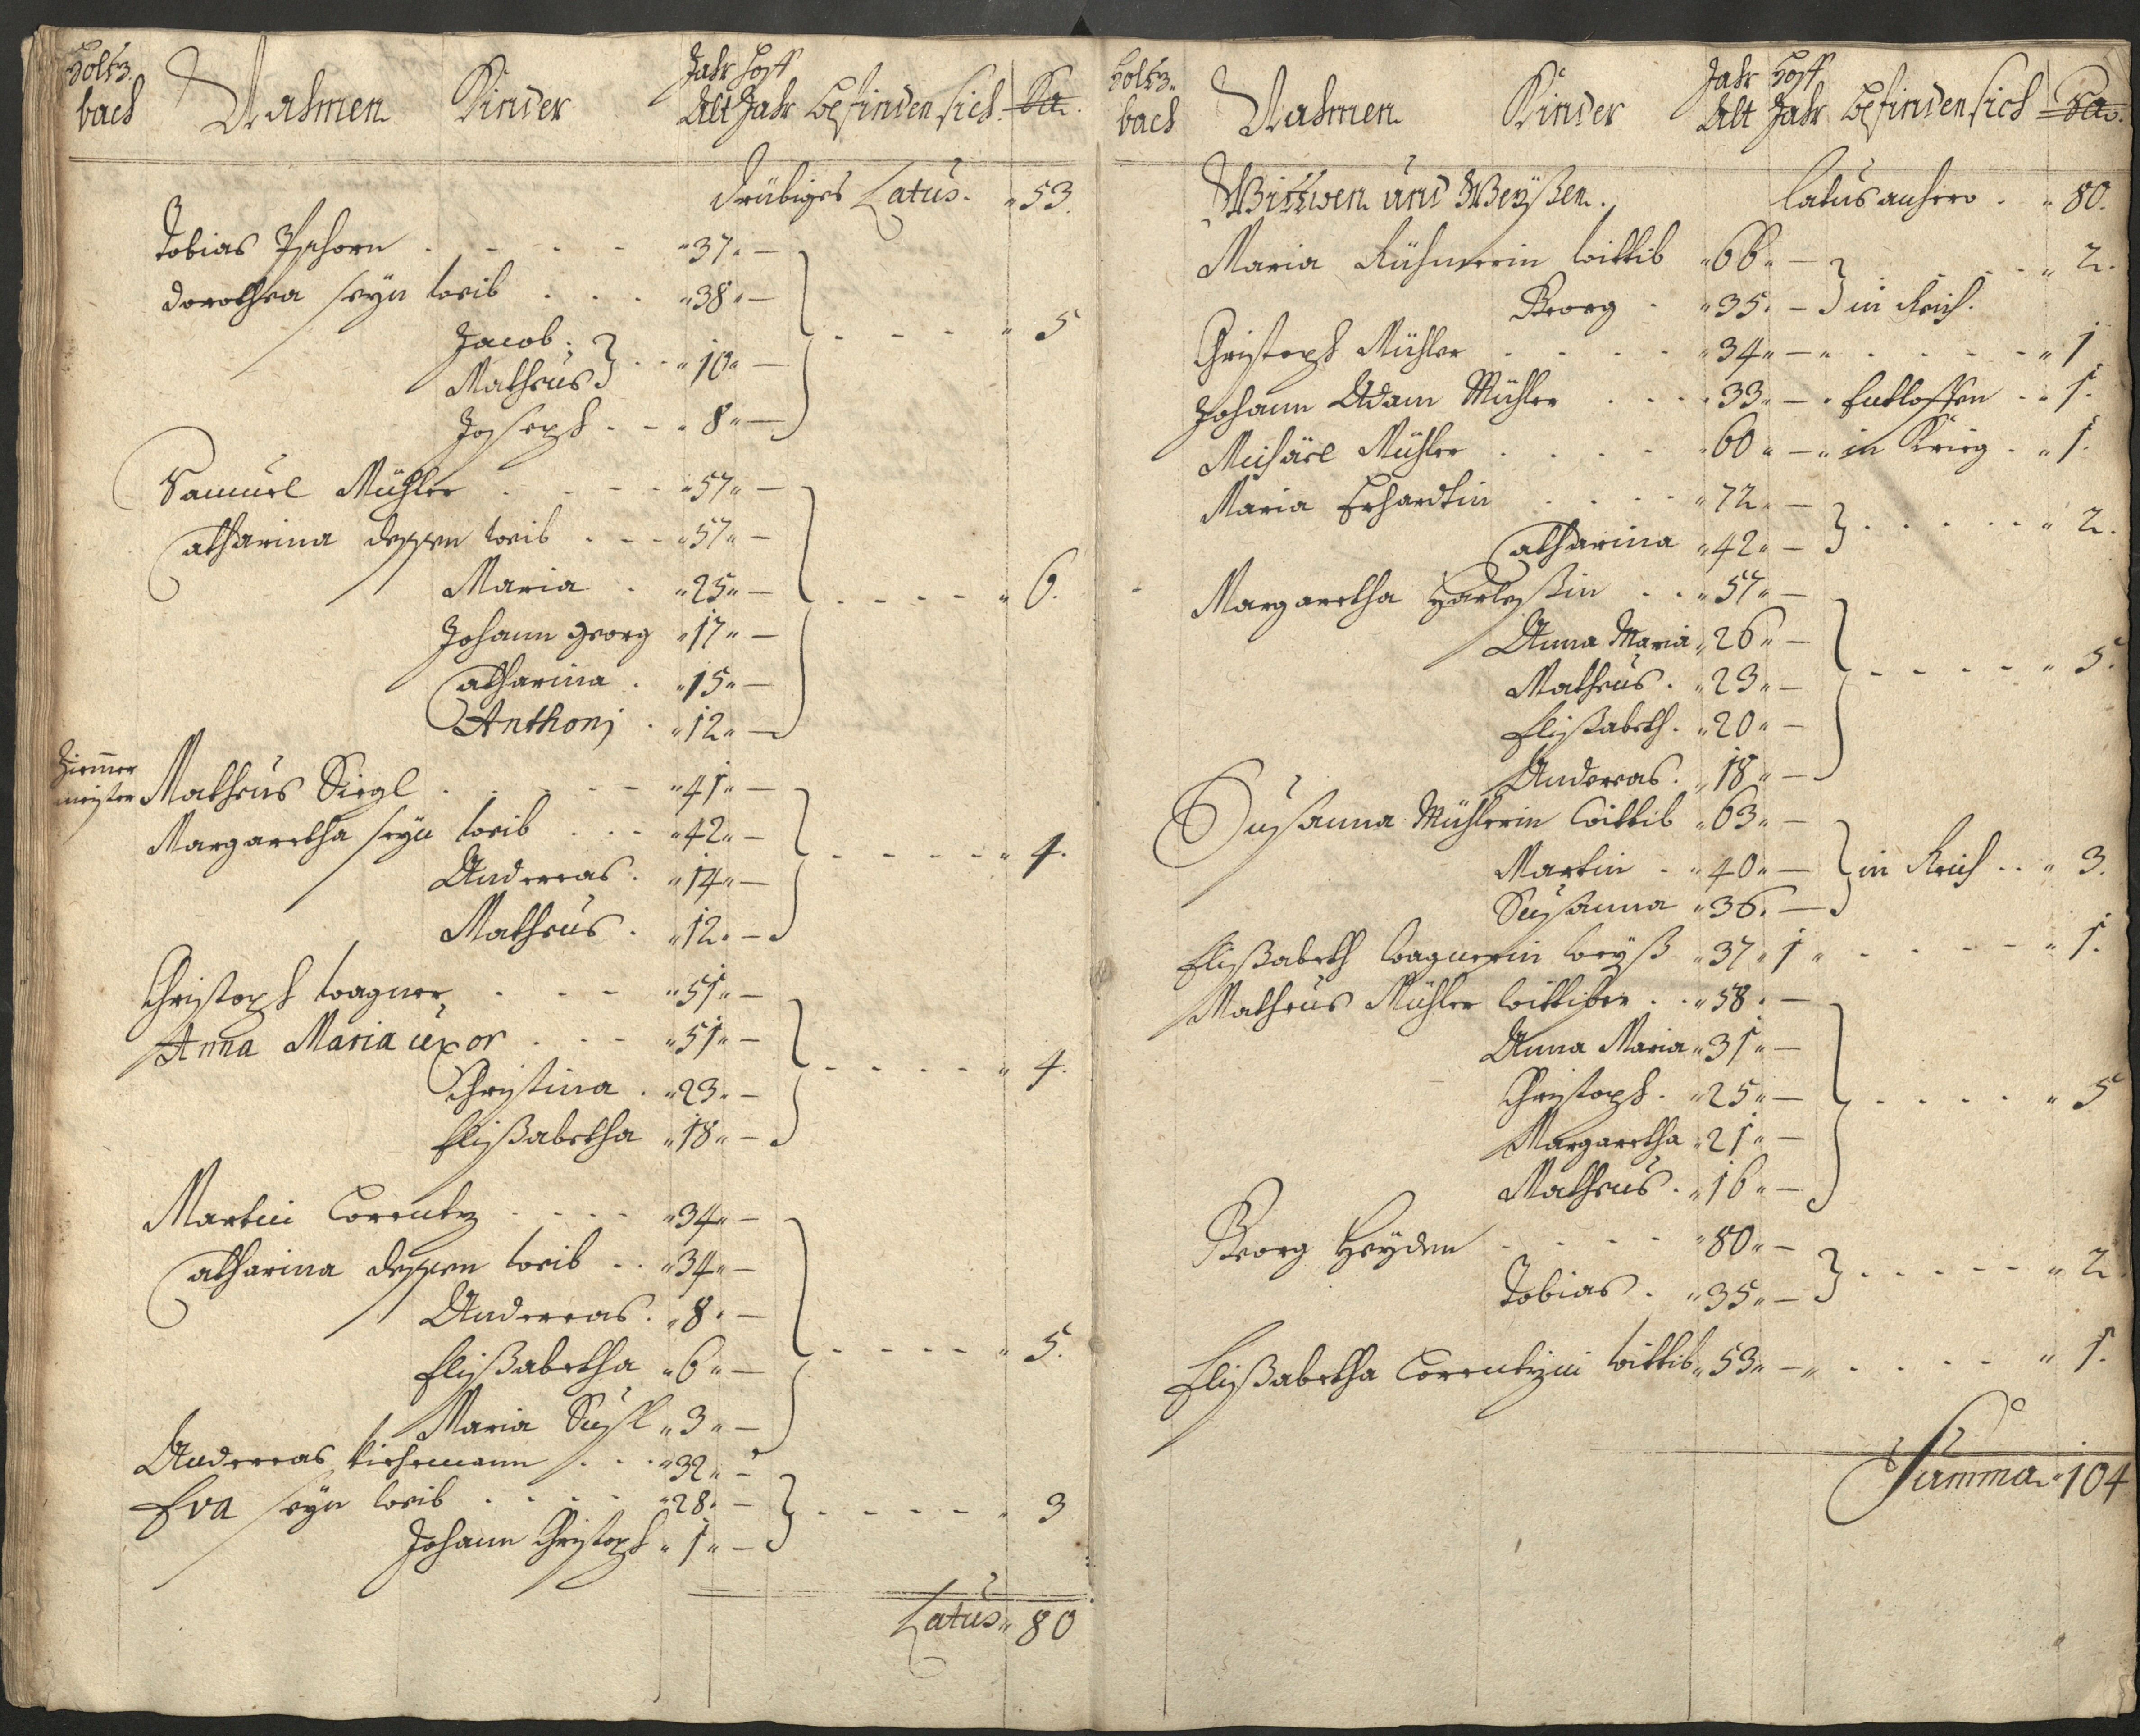 Holtz-
bach
Nahmen Kinder Jahr Alt Hoff Jahr Befinden sich Sa.
drübiges Latus. 53.
Tobias Pschorn . . . . 37. —
Dorothea seyn weib . . . 38. —
Jacob.
Matheus } . . 10. — 5
Joseph . . 8. —
Samuel Mühler . . . . 57. —
Catharina dessen weib . . . 57. —
Maria . 25. — 6.
Johann Georg 17. —
Catharina . 15. —
Anthonj . 12. —
Zimmer
meister Matheus Siegl . . . . 41. —
Margaretha seyn weib . . . 42. — 4.
Andereas . 14. —
Matheus . 12. —
Christoph Wagner . . . 51. —
Anna Maria uxor . . . 51. — 4.
Christina . 23. —
Elißabetha 18. —
Martin Correntz . . . . 34. —
Catharina dessen weib . . 34. —
Andereas . 8. —
Elißabetha 6. — 5.
Maria Susl 3. —
Andereas . . . 32. —
Eva seyn weib . . . . 28. — 3
Johann Christoph 1. —
Latus 80
Holtz-
bach
Nahmen Kinder Jahr Alt Hoff Jahr Befinden sich Sa.
Wittwen und Weyßen. Latus anhero . 80.
Maria wittib 66. — 2.
Georg . 35. — } in Reich.
Christoph Mühler . . . . 34. — . . . . . 1
Johann Adam Mühler . . . 33. — . Entloffen . . 1.
Michäel Mühler . . . . 60. — in Krieg . 1.
Maria Erhardtin . . . . 72. —
Catharina 42. — } . . . . . 2.
Margaretha . . 57. —
Anna Maria 26. —
Matheus . 23. — 5.
Elißabeth . 20. —
Andereas . 18. —
Susanna Mühlerin Wittib 63. —
Martin . 40. — } in Reich . . 3.
Susanna 36. —
Elißabeth Wagnerin weyß 37. 1 . . . . . 1.
Matheus Mühler Wittiber . . 58. —
Anna Maria 31. —
Christoph . 25. — 5
Margaretha 21. —
Matheus . 16. —
Georg Heyden . . . . 80. —
Tobias . 35. — } . . . . . 2.
Elißabetha Correntzin wittib 53. — . . . . . 1.
Summa 104